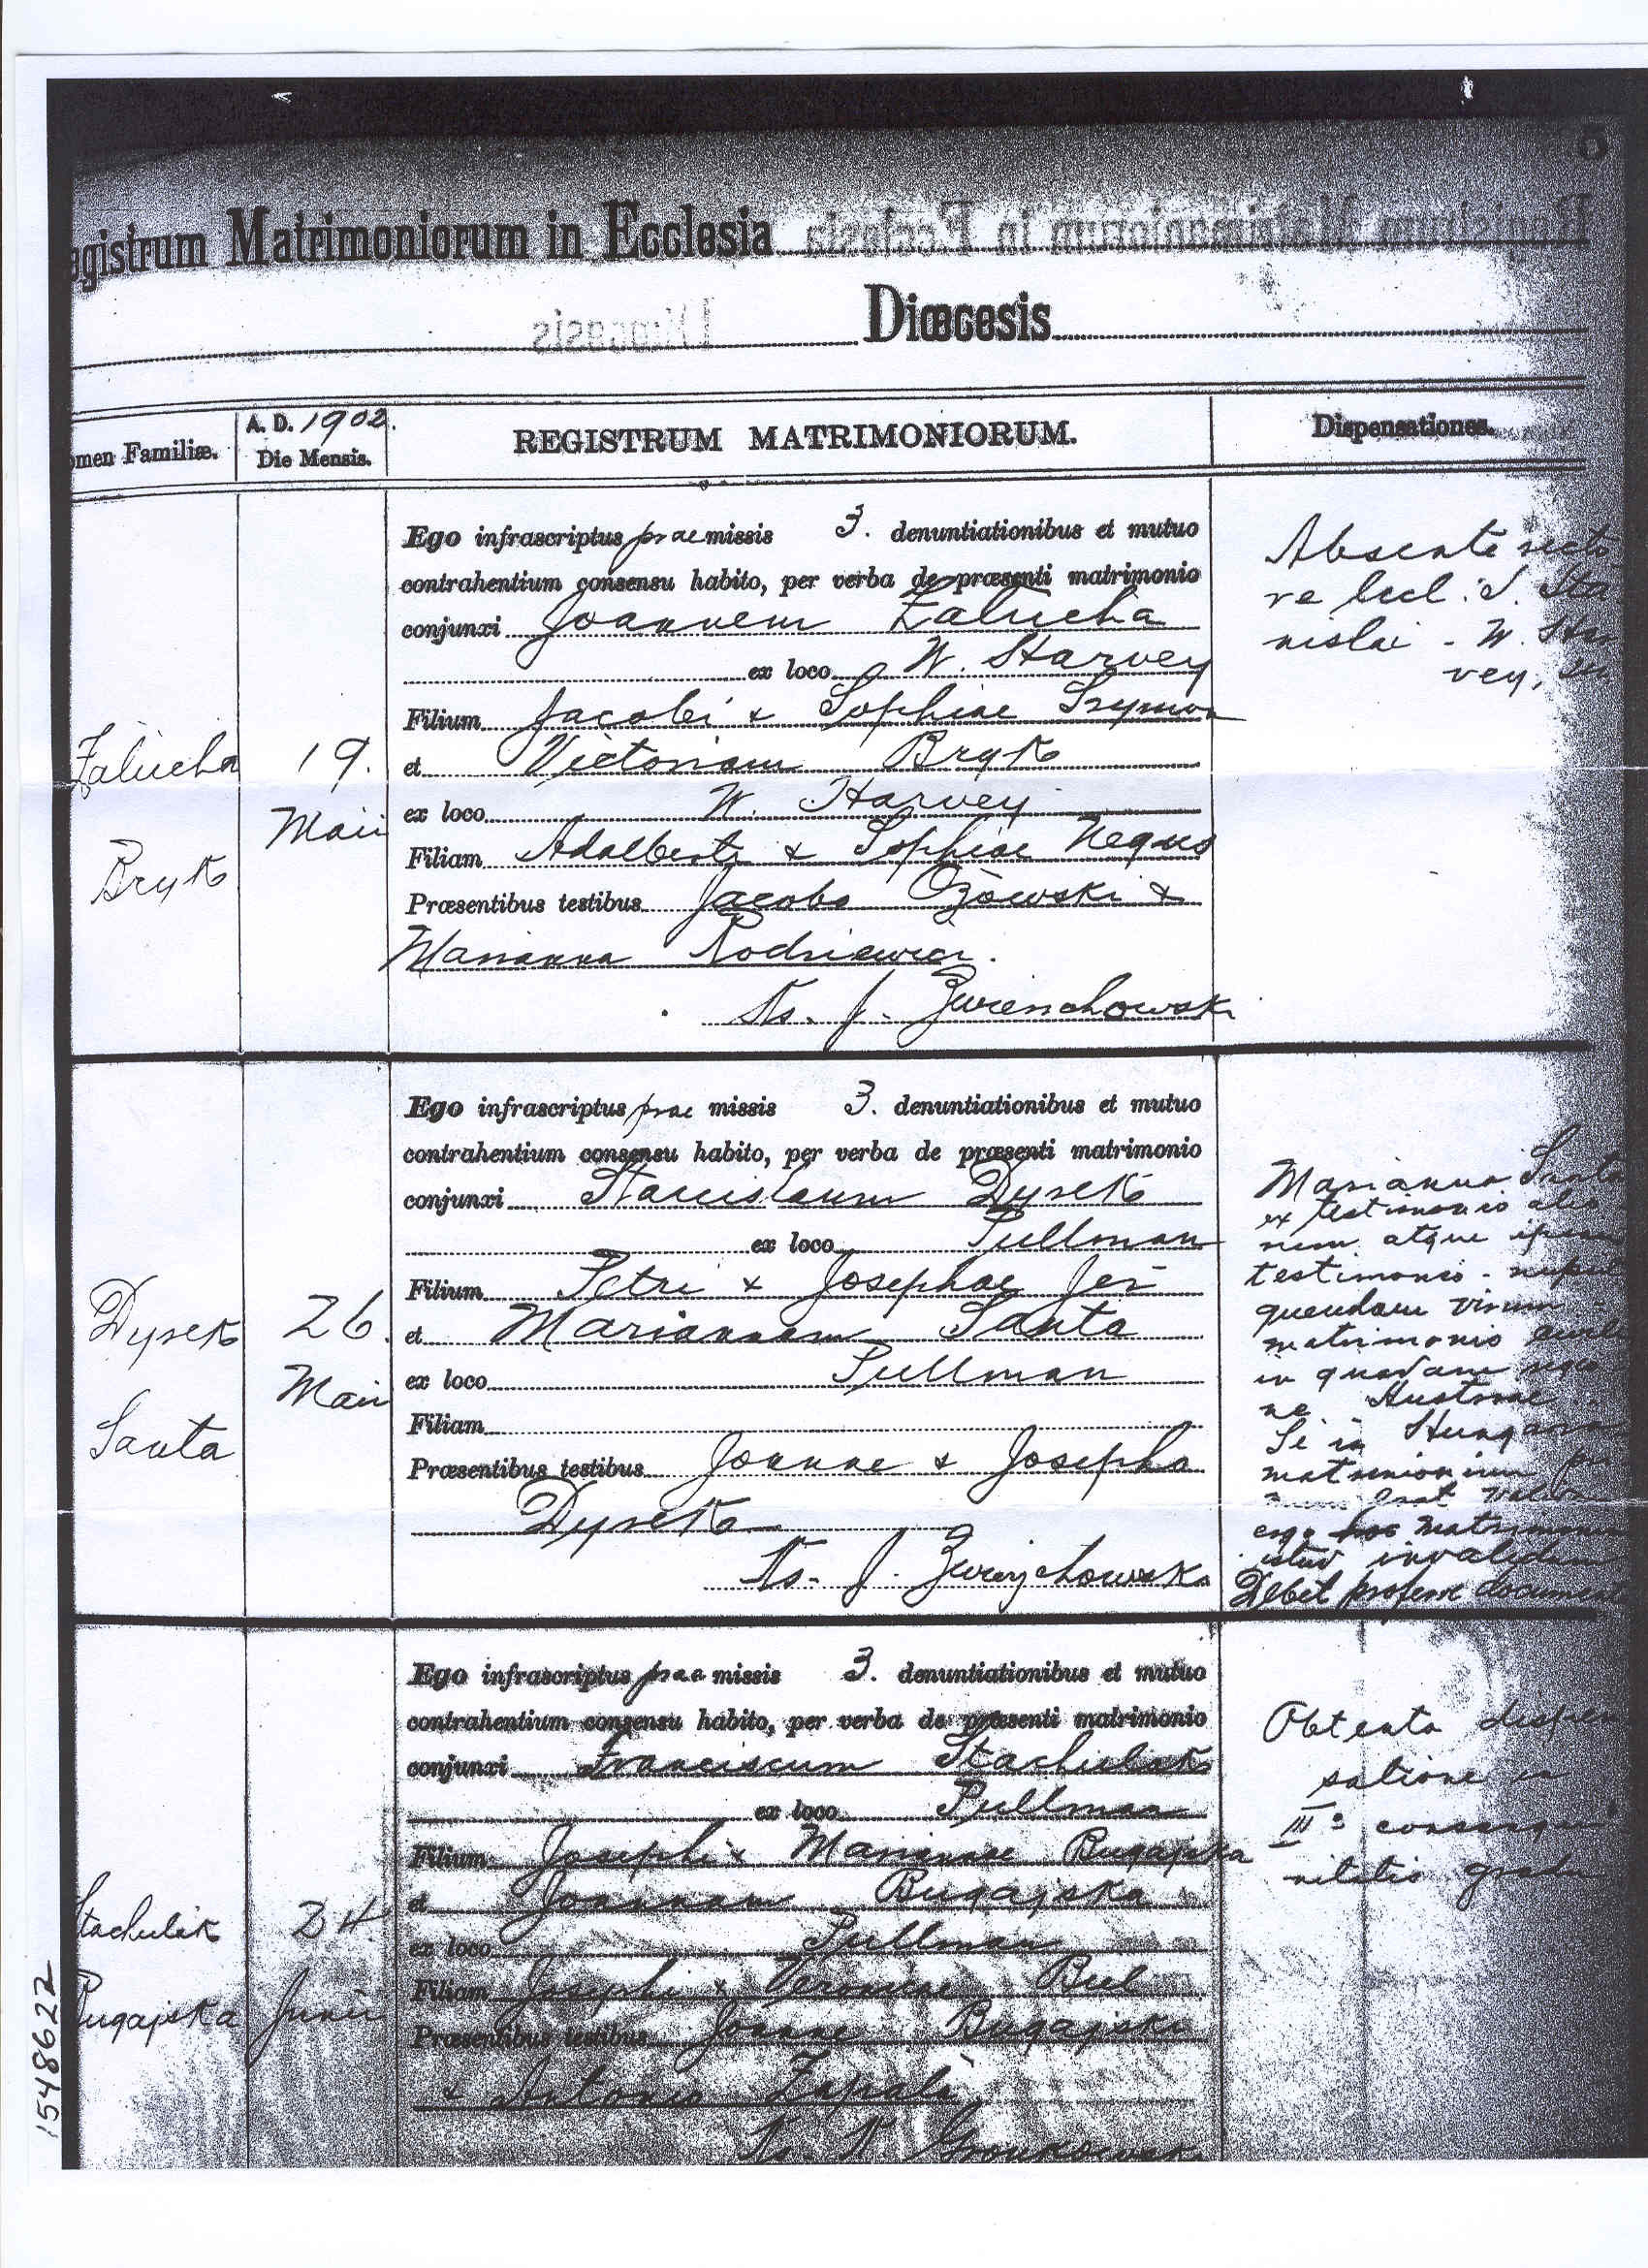 5
egistrum Matrimoniorum in Ecclesia
Diœcesis
omen Familiæ.
A. D. 1902.
Die Mensis.
REGISTRUM MATRIMONIORUM.
Dispensationes.
Zalucha
Bryk
19.
Maii
Ego infrascriptus prae missis 3. denuntiationibus et mutuo
contrahentium consensu habito, per verba de præsenti matrimonio
conjunxi Joannem Zalucha
ex loco W. Harvey
Filium Jacobi & Sophiae Szymon
et Victoriam Bryk
ex loco W. Harvey
Filiam Adalberti & Sophiae Negus
Præsentibus testibus Jacobo Ozowski &
Marianna Rodziewicz.
Ks. J. Zwierzchowski
Absente recto
re Eccl. S. Sta
nislai - W. Har
vey,
Dyrek
Santa
26.
Maii
Ego infrascriptus prae missis 3. denuntiationibus et mutuo
contrahentium consensu habito, per verba de præsenti matrimonio
conjunxi Stanislaum Dyrek
ex loco Pullman
Filium Petri & Josephae Jeż
et Mariannam Santa
ex loco Pullman
Filiam
Præsentibus testibus Joanne & Josepha
Dyrek
Ks. J. Zwierzchowski
Marianna Santa
ex testimonio alio
rum atque
testimonio
quendam virum
matrimonio civili
in quadam regio
ne Austriae.
Si in Hungaria
matrimonium
erat
ergo matrimonium
istud invalidum
Debet proferre document
Stachulak
Bugajska
24
Junii
Ego infrascriptus prae missis 3. denuntiationibus et mutuo
contrahentium consensu habito, per verba de præsenti matrimonio
conjunxi Franciscum Stachulak
ex loco Pullman
Filium Josephi & Mariannae Bugajska
et Joannam Bugajska
ex loco Pullman
Filiam Josephi & Veronicae Biel
Præsentibus testibus Joanne Bugajski
& Antonio Zapala
Ks. Gronkowski
Obtenta dispen
satione in
III° consangui
nitatis gradu
1548622